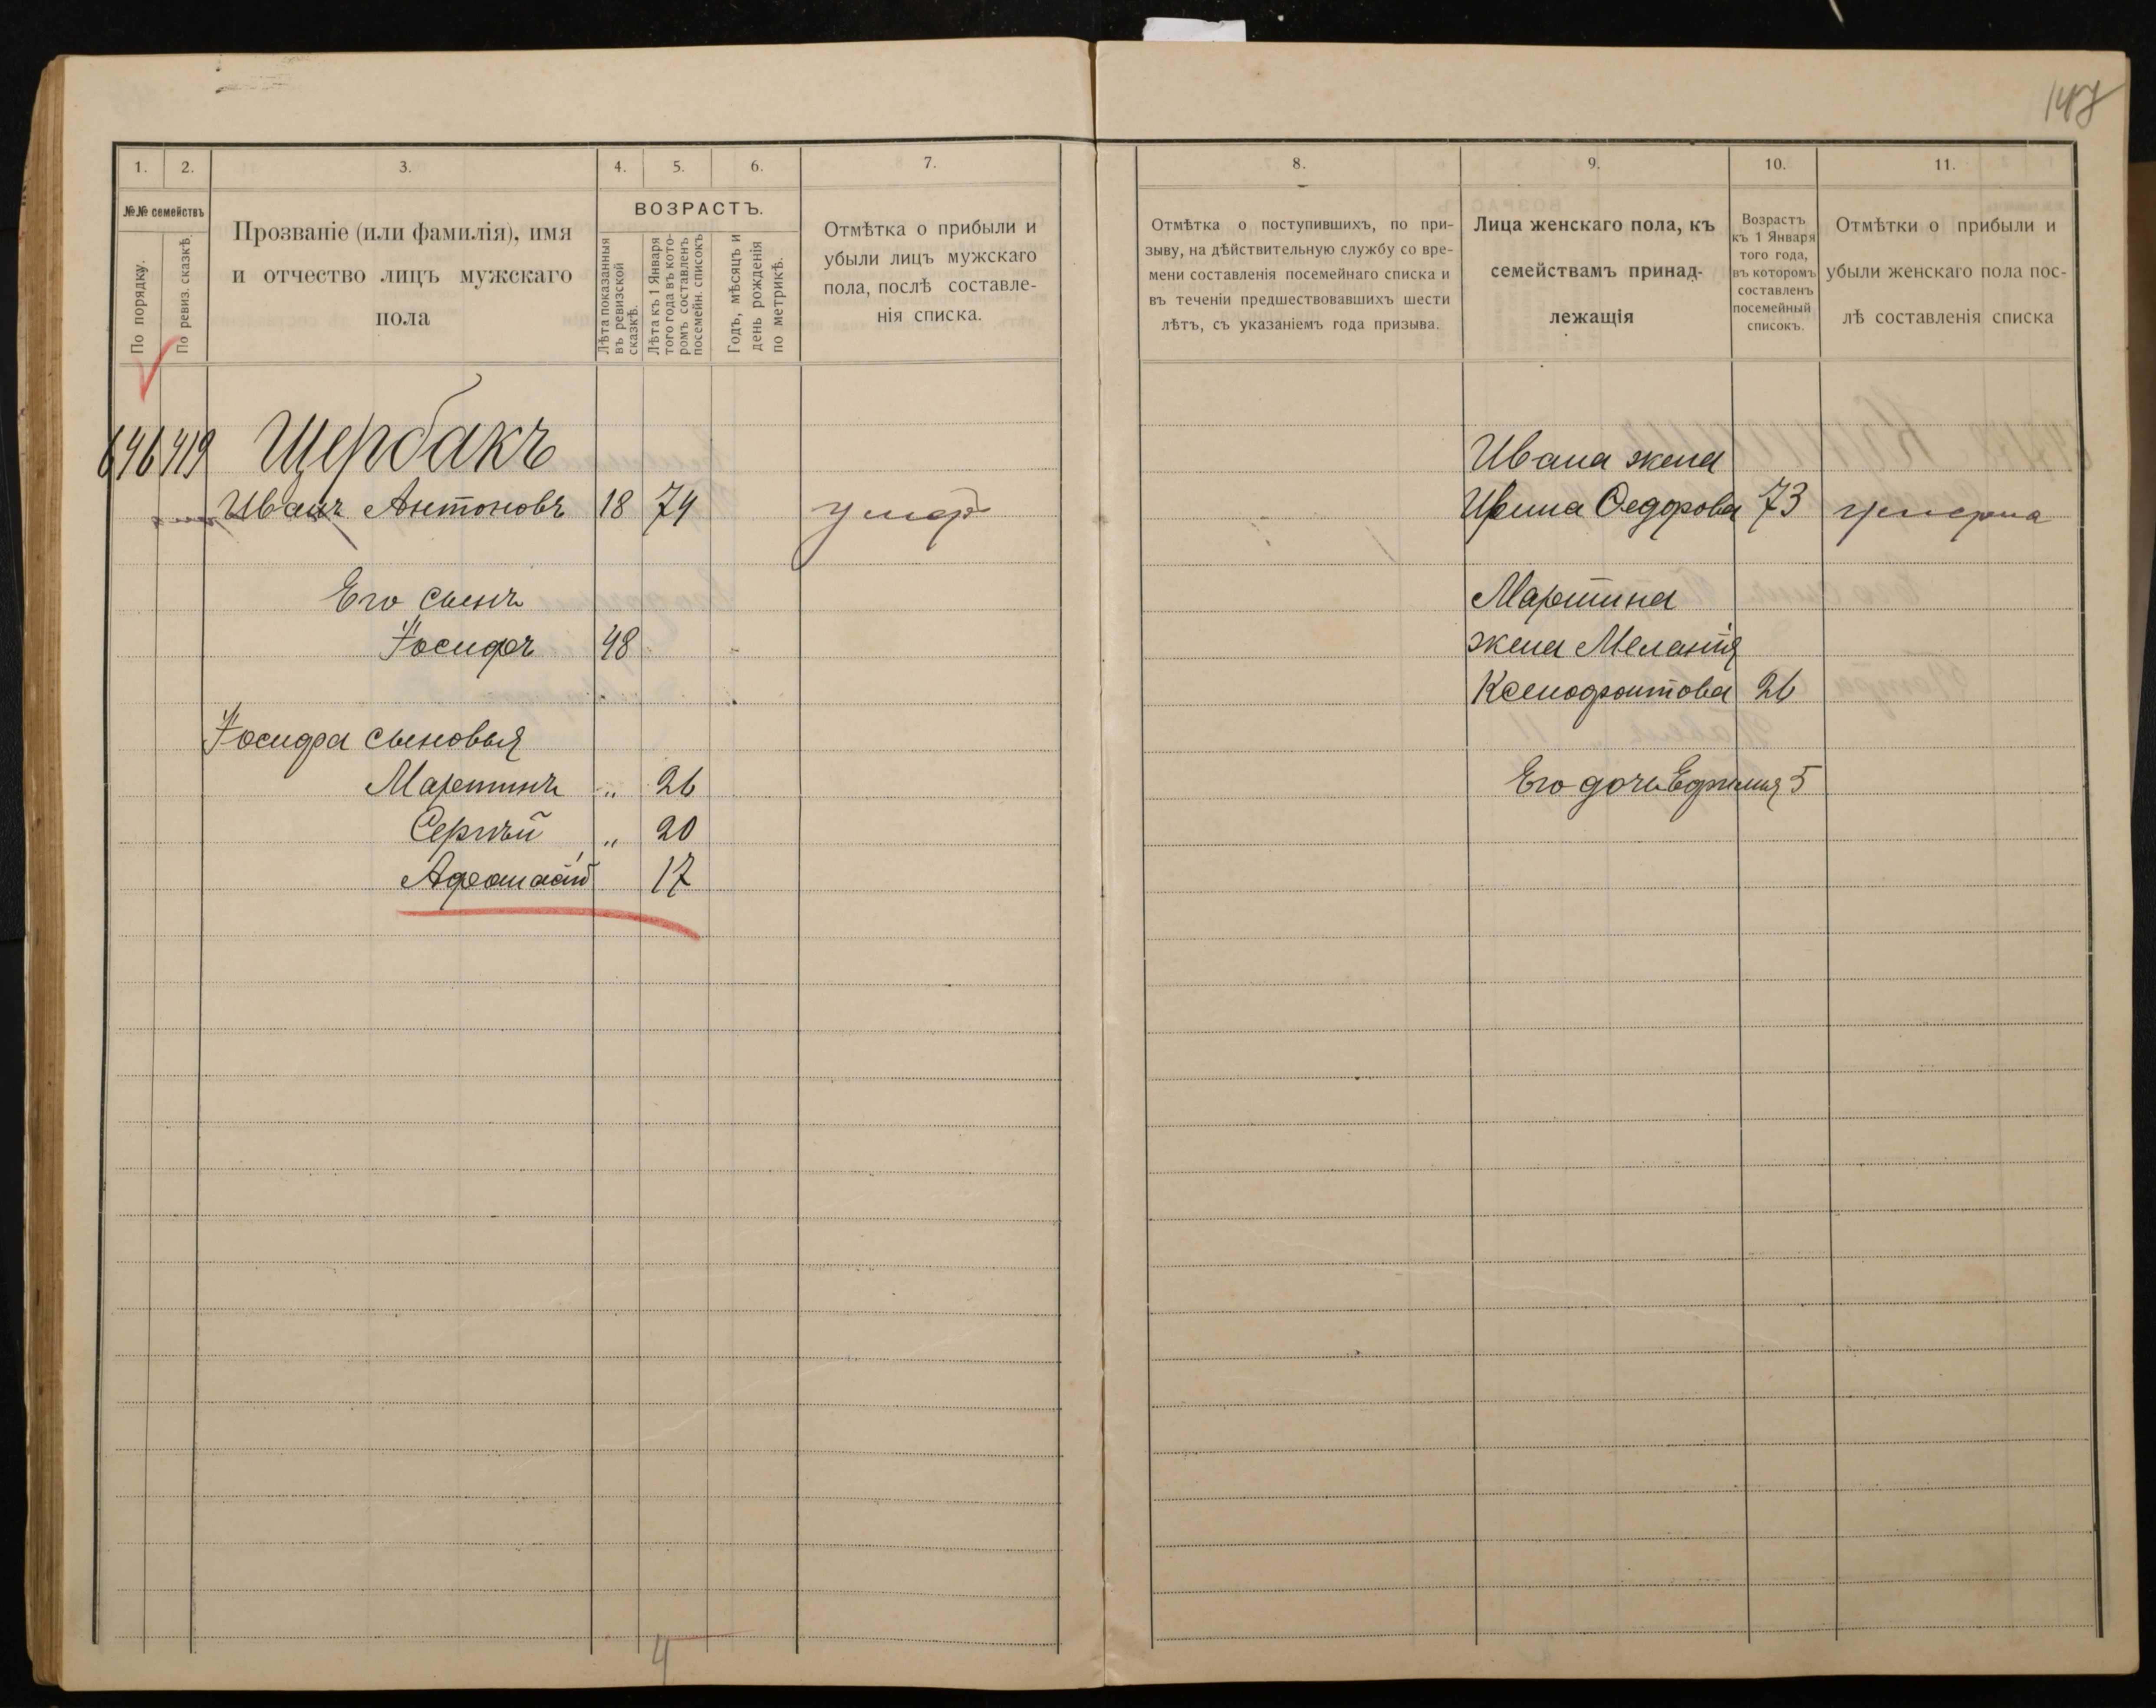 147
1. 2. 3. 4. 5. 6. 7.
№№ семействъ
По порядку.
По ревиз. сказкѣ.
Прозваніе (или фамилія), имя
и отчество лицъ мужскаго
пола
ВОЗРАСТЪ.
Лѣта показанныя
въ ревизской
сказкѣ.
Лѣта къ 1 Января
того года въ кото-
ромъ составленъ
посемейн. списокъ
Годъ, мѣсяцъ и
день рожденія
по метрикѣ.
Отмѣтка о прибыли и
убыли лицъ мужскаго
пола, послѣ составле-
нія списка.
646 419 Щербакъ
Иванъ Антоновъ 18 74 умеръ
Его сынъ
Іосифъ 48
Іосифа сыновья
Мартинъ " 26
Сергѣй " 20
Афонасій 17
4
8. 9. 10. 11.
Отмѣтка о поступившихъ, по при-
зыву, на дѣйствительную службу со вре-
мени составленія посемейнаго списка и
въ теченіи предшествовавшихъ шести
лѣтъ, съ указаніемъ года призыва.
Лица женскаго пола, къ
семействамъ принад-
лежащія
Возрастъ
къ 1 Января
того года,
въ которомъ
составленъ
посемейный
списокъ.
Отмѣтки о прибыли и
убыли женскаго пола пос-
лѣ составленія списка
Ивана жена
Ирина Федорова 73 умерла
Мартина
жена Меланія
Ксенофонтова 26
Его дочь Ефимія 5